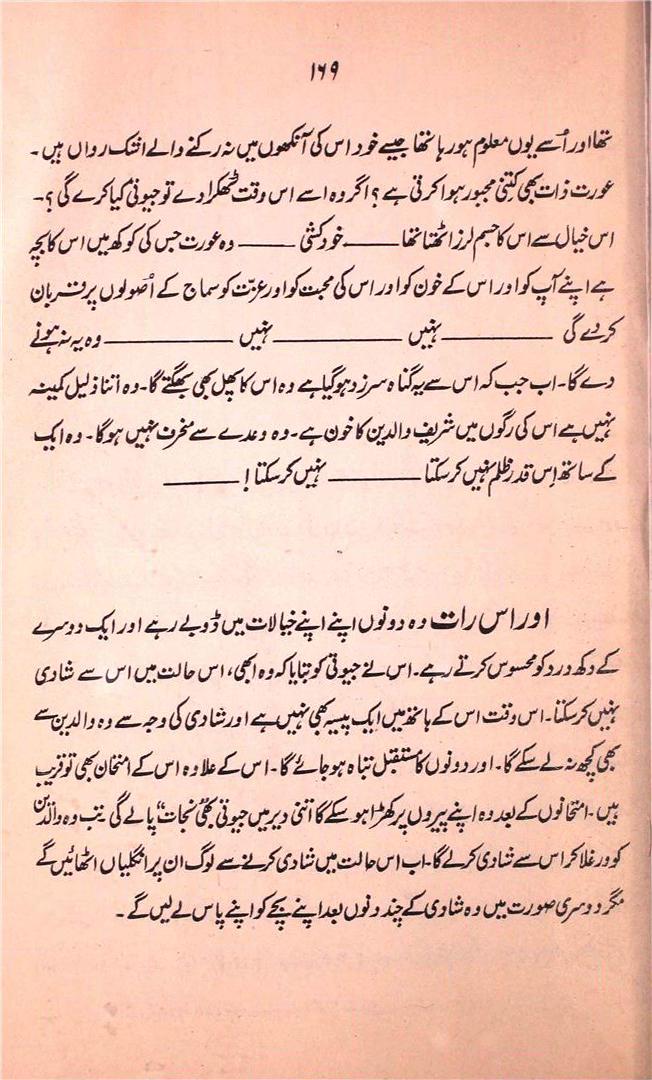 ۱۶۹
تھا اور اُسے یوں معلوم ہو رہا تھا جیسے خود اس کی آنکھوں میں نہ رکنے والے اشک رواں ہیں۔
عورت ذات بھی کتنی مجبور ہوا کرتی ہے؟ اگر وہ اسے اس وقت ٹھکرا دے تو جیوتی کیا کرے گی؟۔
اس خیال سے اس کا جسم لرز اٹھتا تھا ——— خودکشی ——— وہ عورت جس کی کوکھ میں اس کا بچہ
ہے اپنے آپ کو اور اس کے خون کو اور اس کی محبت کو اور عزت کو سماج کے اُصولوں پر قربان
کر دے گی ——— نہیں ——— نہیں ——— وہ یہ نہ ہونے
دے گا۔ اب جب کہ اس سے یہ گناہ سرزد ہو گیا ہے وہ اس کا پھل بھی بھگتے گا۔ وہ اتنا ذلیل کمینہ
نہیں ہے اس کی رگوں میں شریف والدین کا خون ہے۔ وہ وعدے سے منحرف نہیں ہو گا۔ وہ ایک
کے ساتھ اِس قدر ظلم نہیں کر سکتا ——— نہیں کر سکتا! ———
اور اس رات وہ دونوں اپنے اپنے خیالات میں ڈوبے رہے اور ایک دوسرے
کے دکھ درد کو محسوس کرتے رہے۔ اس نے جیوتی کو بتایا کہ وہ ابھی، اس حالت میں اس سے شادی
نہیں کر سکتا۔ اس وقت اس کے ہاتھ میں ایک پیسہ بھی نہیں ہے اور شادی کی وجہ سے وہ والدین سے
بھی کچھ نہ لے سکے گا۔ اور دونوں کا مستقبل تباہ ہو جائے گا۔ اس کے علاوہ اس کے امتحان بھی تو قریب
ہیں۔ امتحانوں کے بعد وہ اپنے پیروں پر کھڑا ہو سکے گا اتنی دیر میں جیوتی بھی "نجات" پا لے گی تب وہ والدین
کو ورغلا کر اس سے شادی کر لے گا۔ اب اس حالت میں شادی کرنے سے لوگ ان پر انگلیاں اٹھائیں گے
مگر دوسری صورت میں وہ شادی کے چند دنوں بعد اپنے بچے کو اپنے پاس لے لیں گے۔